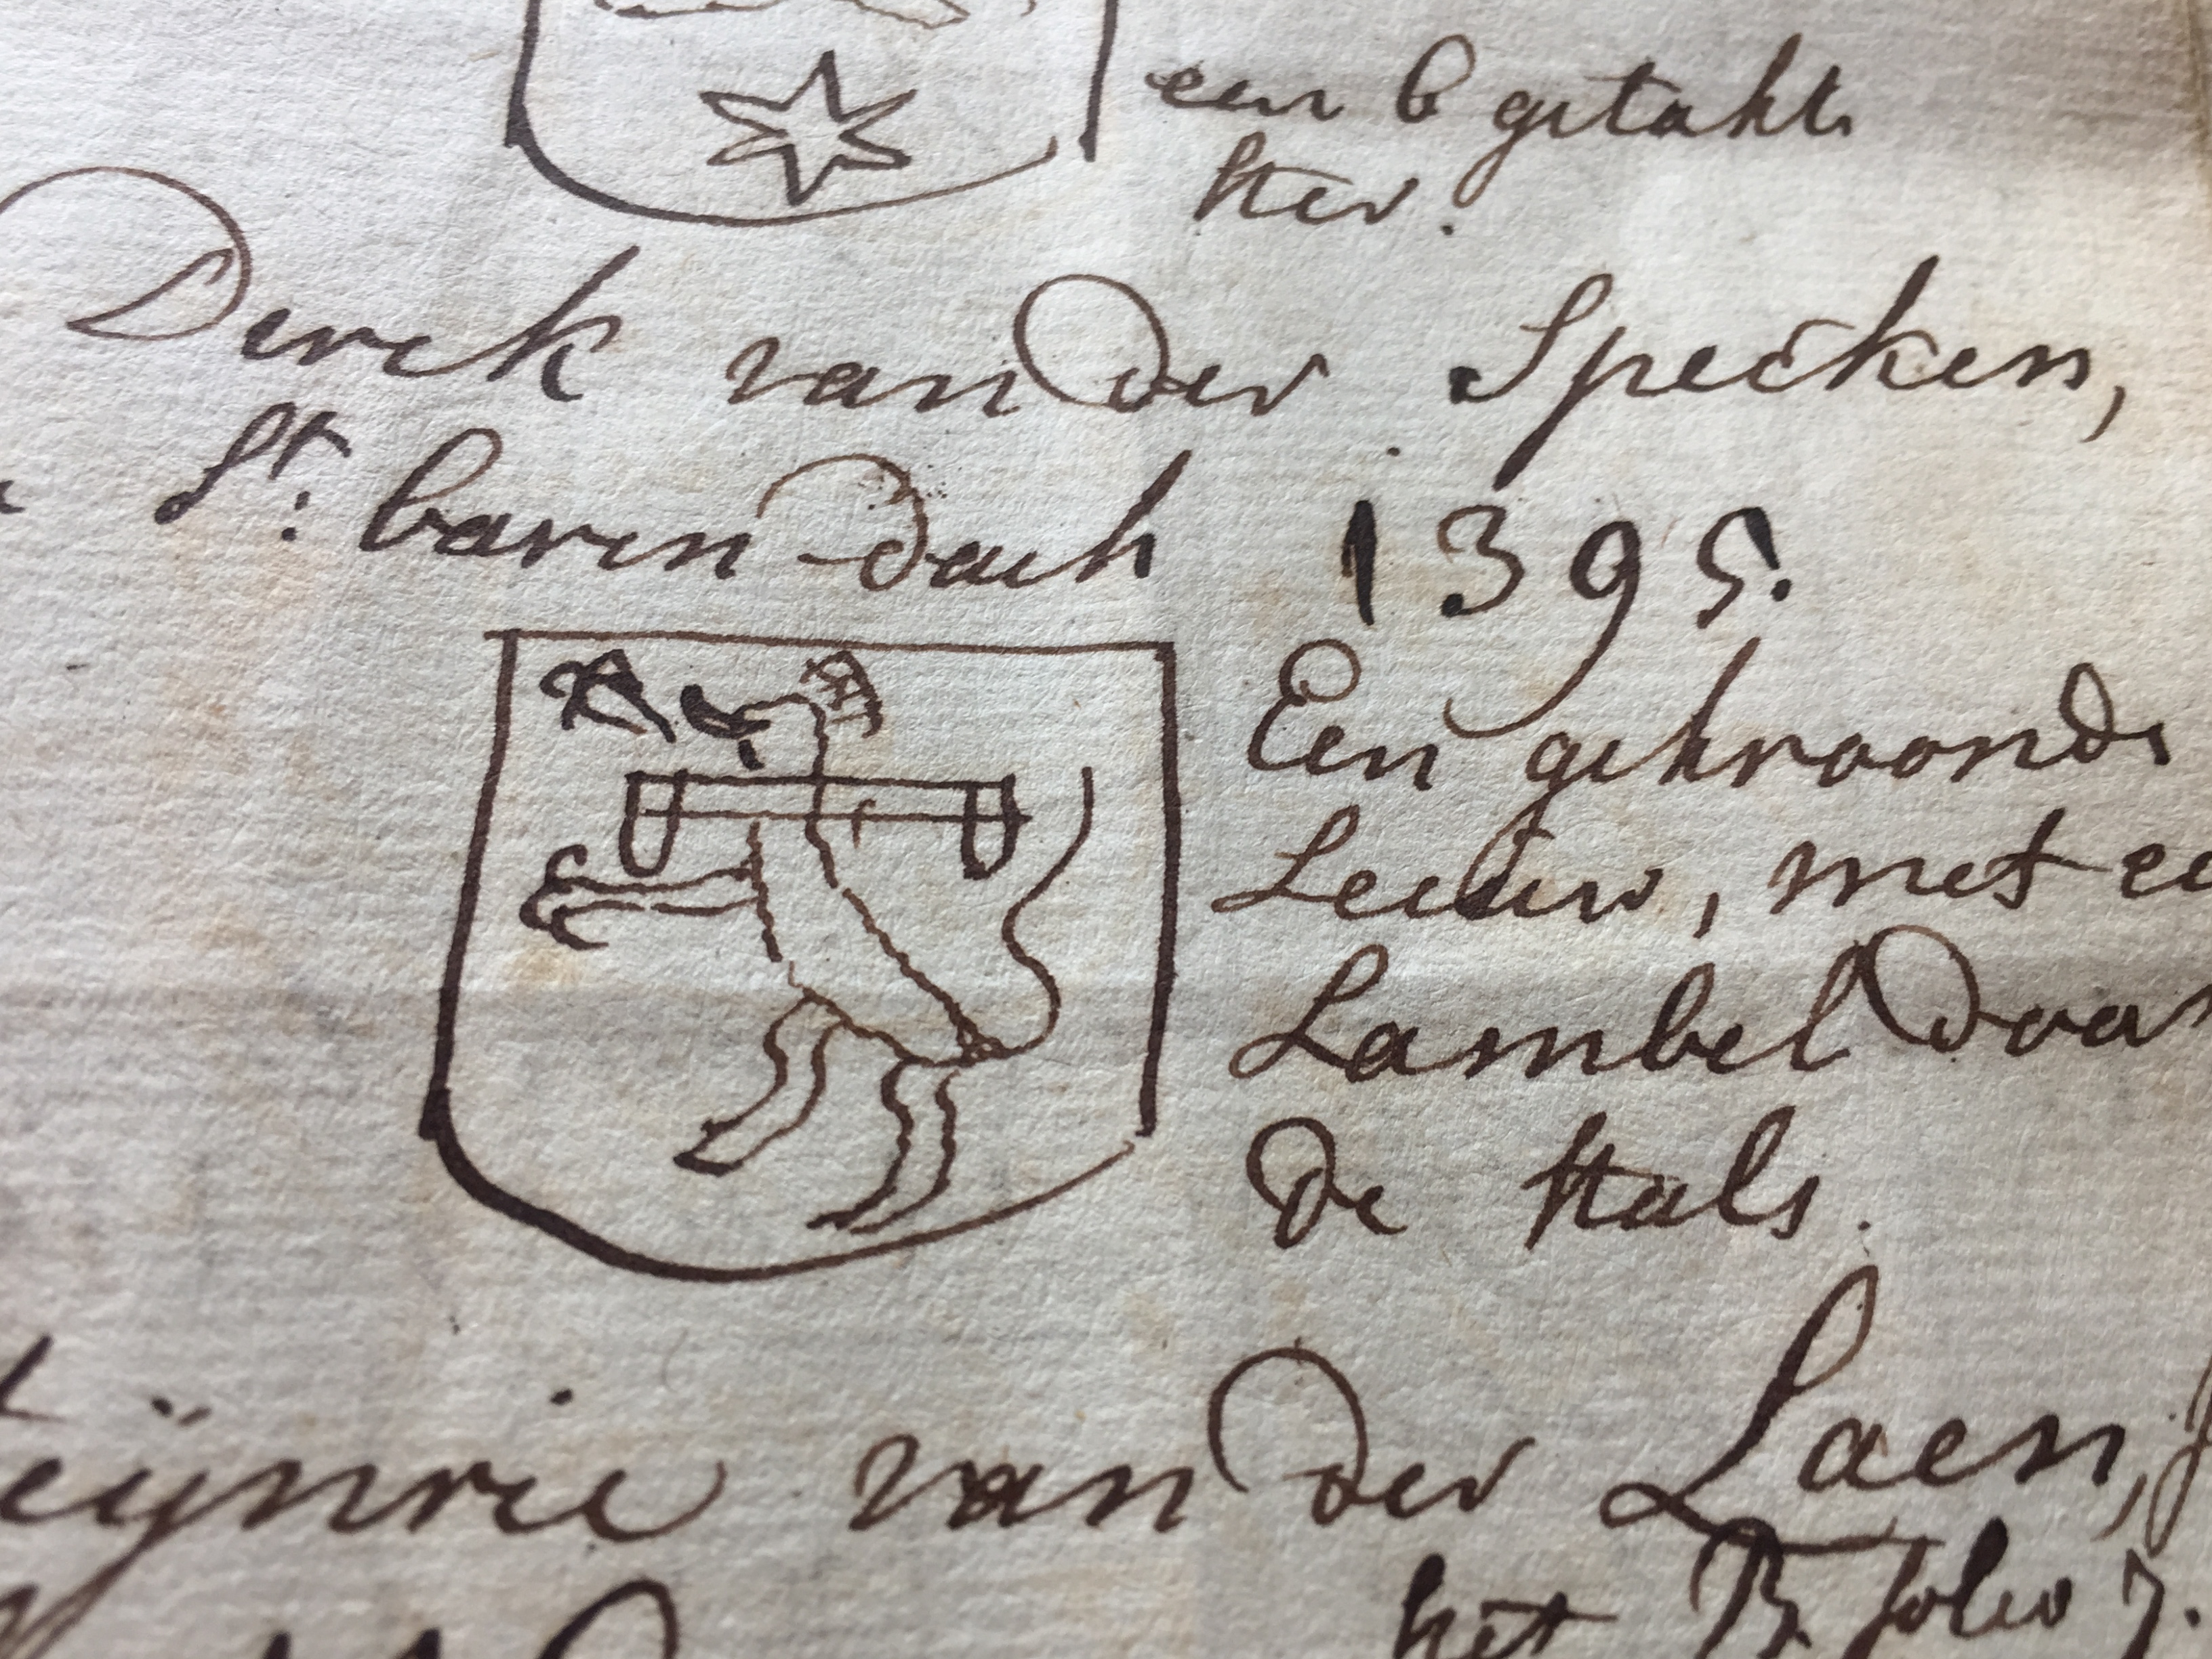 een 6 getakte
ster.
Derck van der Specken,
St: baven dach 1395.
Een gekroonde
Leeuw, met ee
Lambel door
de Hals.
eijnric van der Laen,
het B folio 7.